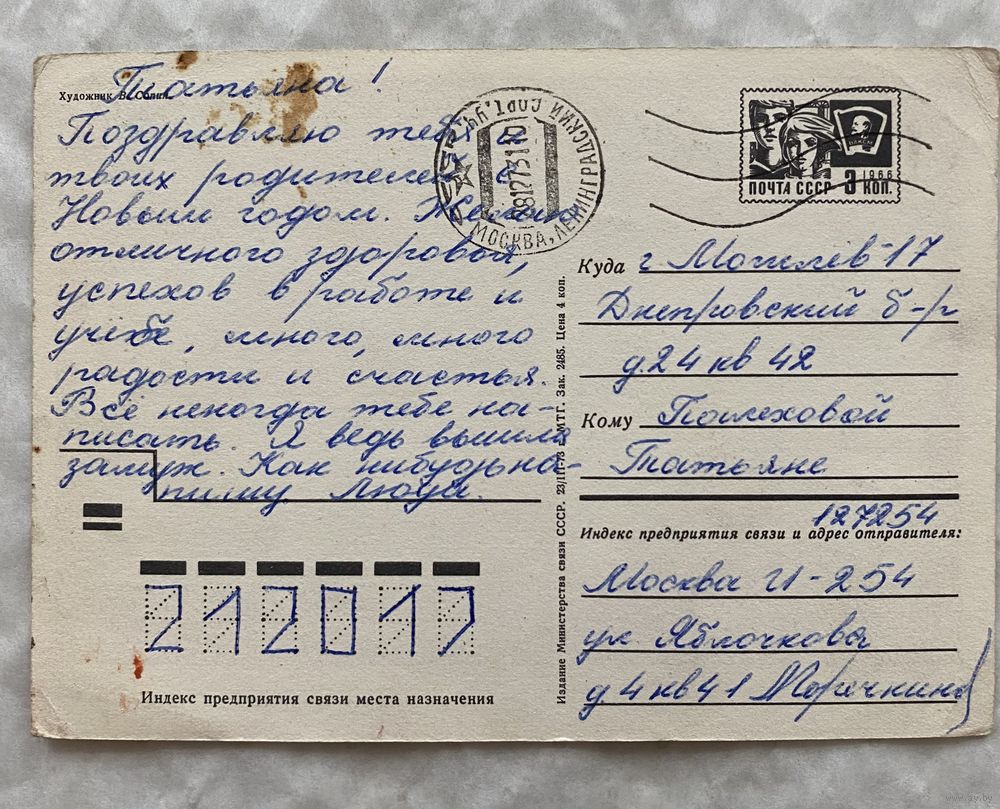 Художник В. Сопин
Татьяна!
Поздравляю тебя и
твоих родителей с
Новым годом. Желаю
отличного здоровья,
успехов в работе и
учёбе, много, много
радости и счастья.
Всё некогда тебе на-
писать. Я ведь вышла
замуж. Как нибудь на-
пишу. Люда.
МОСКВА, ЛЕНИНГРАДСКИЙ СОРТ. УЧ.
СССР
ПОЧТА СССР 3 КОП.
1966
Куда г. Могилёв-17
Днепровский б-р
д. 24 кв 42
Кому Палеховой
Татьяне
127254
Индекс предприятия связи и адрес отправителя:
Москва И-254
ул Яблочкова
д. 4 кв 41
Издание Министерства связи СССР. 23/III-73 г. МТГ. Зак. 2485. Цена 4 коп.
212017
Индекс предприятия связи места назначения
www.ay.by